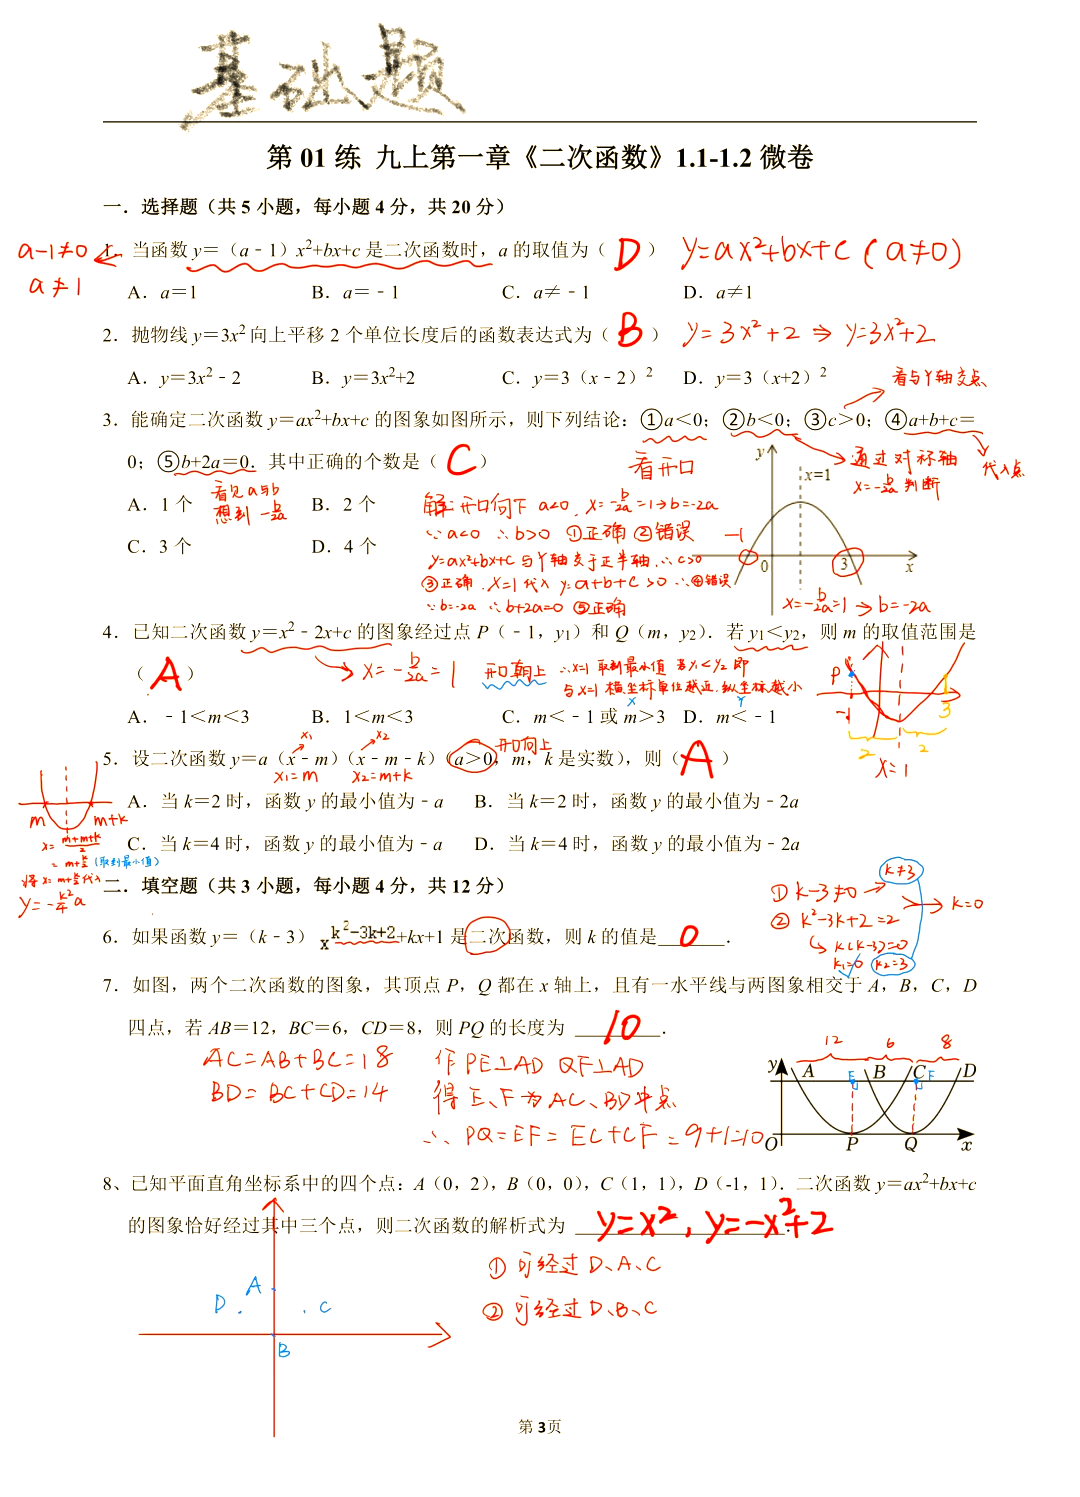 基础题
第 01 练  九上第一章《二次函数》1.1-1.2 微卷
一．选择题（共 5 小题，每小题 4 分，共 20 分）
a-1≠0
a≠1
1．当函数 y＝（a﹣1）x²+bx+c 是二次函数时，a 的取值为（ D ） y=ax²+bx+c (a≠0)
A．a＝1 B．a＝﹣1 C．a≠﹣1 D．a≠1
2．抛物线 y＝3x² 向上平移 2 个单位长度后的函数表达式为（ B ） y=3x²+2 ⇒ y=3x²+2
A．y＝3x²﹣2 B．y＝3x²+2 C．y＝3（x﹣2）² D．y＝3（x+2）²
看与Y轴交点
3．能确定二次函数 y＝ax²+bx+c 的图象如图所示，则下列结论：①a＜0；②b＜0；③c＞0；④a+b+c＝
0；⑤b+2a＝0．其中正确的个数是（ C ）
看开口
通过对称轴
x=-b/2a 判断
代入点
看见a与b
想到 -b/2a
A．1 个 B．2 个
C．3 个 D．4 个
解: 开口向下 a<0. x=-b/2a=1→b=-2a
∵a<0 ∴b>0 ①正确 ②错误
y=ax²+bx+c 与Y轴交于正半轴 ∴c>0
③正确. x=1代入 y=a+b+c>0 ∴④错误
∵b=-2a ∴b+2a=0 ⑤正确
y x=1
-1 0 3 x
x=-b/2a=1→b=-2a
4．已知二次函数 y＝x²﹣2x+c 的图象经过点 P（﹣1，y₁）和 Q（m，y₂）．若 y₁＜y₂，则 m 的取值范围是
（ A ）
x=-b/2a=1 开口朝上 ∴x=1 取到最小值 若y₁<y₂ 即
与x=1 横坐标单位越近.纵坐标越小
x y
P -1 3
2 2
x=1
A．﹣1＜m＜3 B．1＜m＜3 C．m＜﹣1 或 m＞3 D．m＜﹣1
x₁ x₂ 开口向上
5．设二次函数 y＝a（x﹣m）（x﹣m﹣k）（a＞0，m，k 是实数），则（ A ）
x₁=m x₂=m+k
A．当 k＝2 时，函数 y 的最小值为﹣a B．当 k＝2 时，函数 y 的最小值为﹣2a
C．当 k＝4 时，函数 y 的最小值为﹣a D．当 k＝4 时，函数 y 的最小值为﹣2a
m m+k
x=(m+m+k)/2
=m+k/2 (取到最小值)
将x=m+k/2代入
y=-k²/4 a
二．填空题（共 3 小题，每小题 4 分，共 12 分）
① k-3≠0 → k≠3
② k²-3k+2=2 → k=0
k(k-3)=0
k₁=0 k₂=3
6．如果函数 y＝（k﹣3）x^(k²-3k+2)+kx+1 是二次函数，则 k 的值是 0 ．
7．如图，两个二次函数的图象，其顶点 P，Q 都在 x 轴上，且有一水平线与两图象相交于 A，B，C，D
四点，若 AB＝12，BC＝6，CD＝8，则 PQ 的长度为 10 ．
AC=AB+BC=18 作PE⊥AD QF⊥AD
BD=BC+CD=14 得E、F为AC、BD中点
∴ PQ=EF=EC+CF=9+1=10
12 6 8
y A E B C F D
O P Q x
8、已知平面直角坐标系中的四个点：A（0，2），B（0，0），C（1，1），D（-1，1）．二次函数 y＝ax²+bx+c
的图象恰好经过其中三个点，则二次函数的解析式为 y=x², y=-x²+2 ．
① 可经过 D、A、C
② 可经过 D、B、C
A
D C
B
第 3页